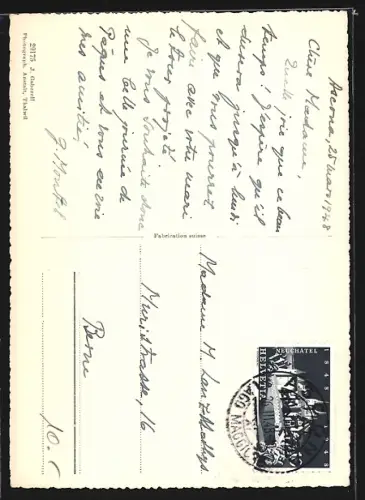 Ascona, 25 mars 1948
Chère Madame,
Quelle joie que ce beau
temps! J'espère qu'il
durera jusqu'à lundi
et que vous pourrez
faire avec votre mari
le tour projeté
Je vous souhaite donc
une belle journée de
Pâques et vous envoie
mes amitiés
29175 J. Gaberell
Photograph. Anstalt, Thalwil
Fabrication suisse
Madame M.
Muristrasse, 16
Berne
10.-
NEUCHÂTEL
1848 1948
HELVETIA